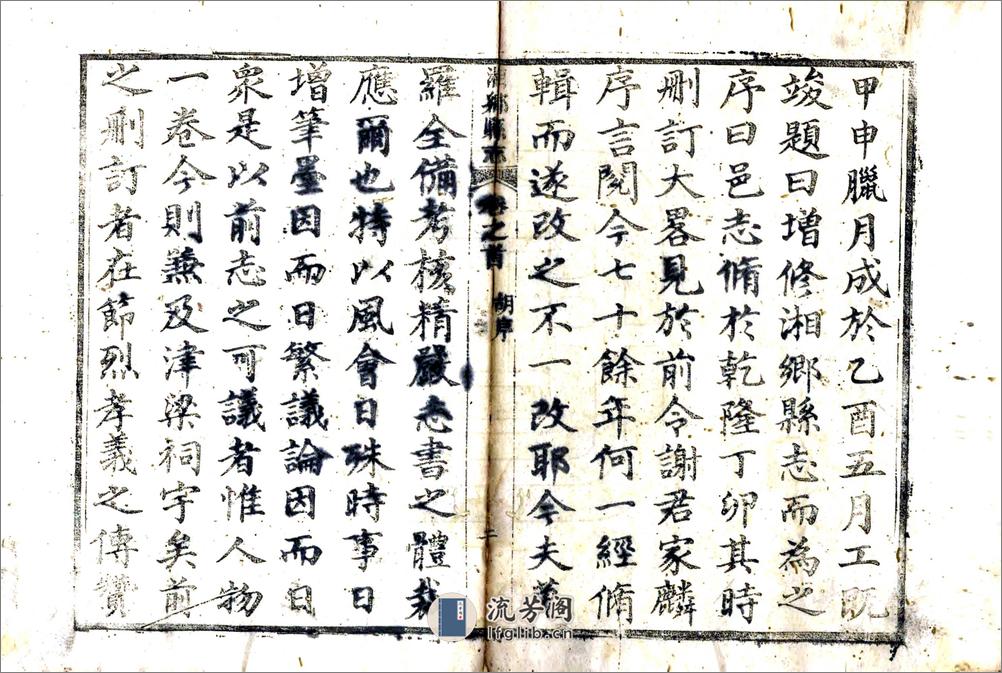 甲申臘月成於乙酉五月工既
竣題曰增修湘鄉縣志而為之
序曰邑志脩於乾隆丁卯其時
刪訂大畧見於前令謝君家麟
序言閱今七十餘年何一經脩
輯而遂改之不一改耶今夫蒐
湘鄉縣志
卷之首
胡序
二
羅全備考核精嚴志書之體我
應爾也特以風會日殊時事日
增筆墨因而日繁議論因而日
衆是以前志之可議者惟人物
一卷今則兼及津梁祠宇矣前
之刪訂者在節烈孝義之傳贊
流芳阁
lfglib.cn